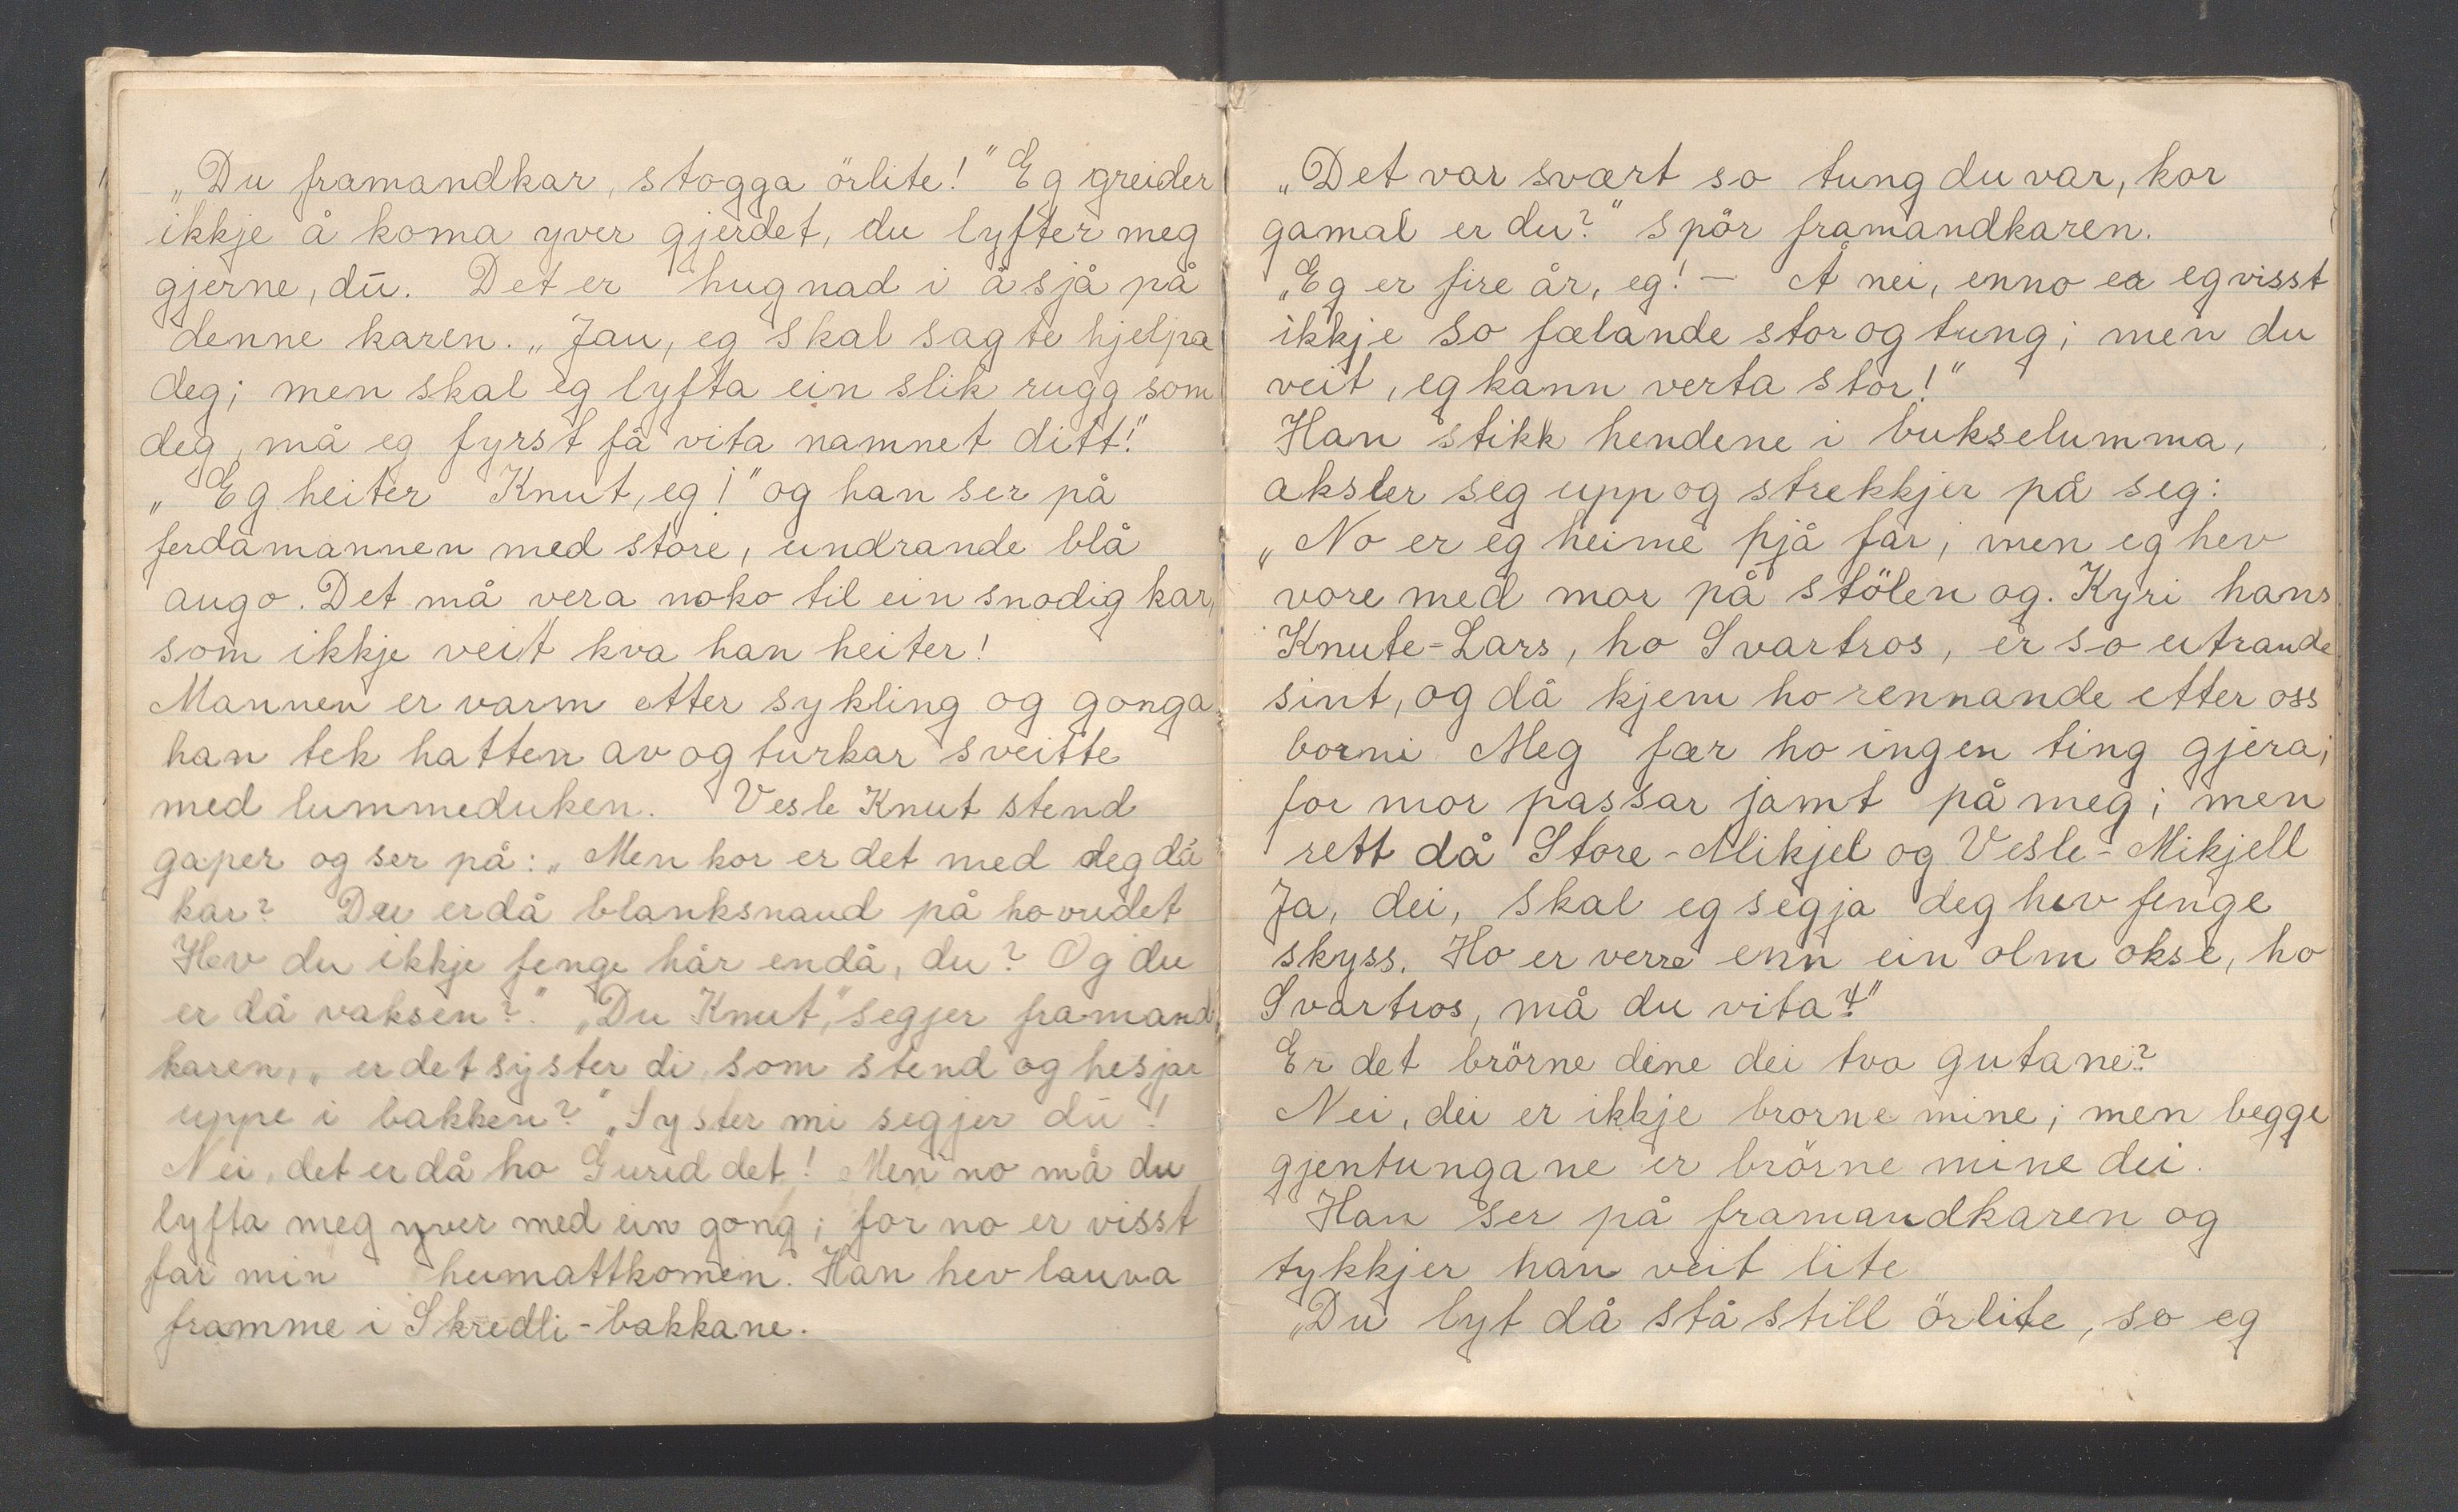 „Du framandkar, stogga örlite!" Eg greider
ikkje å koma yver gjerdet, du lyfter meg
gjerne, dū. Det er hugnad i å sjå på
denne karen. „Jau, eg skal sagte hjelpa
deg; men skal eg lyfta ein slik rugg som
deg, må eg fyrst få vita namnet ditt!"
„Eg heiter Knut, eg!" og han ser på
ferdamannen med store, undrande blå
augo. Det må vera noko til ein snodig kar,
som ikkje veit kva han heiter!
Mannen er varm etter sykling og gonga
han tek hatten av og turkar sveitte
med lummeduken. Vesle Knut stend
gaper og ser på: „Men kor er det med deg då
kar? Du er då blanksnaud på hovudet
Hev du ikkje fenge hår endå, du? Og du
er då vaksen?" „Du Knut," segjer framand
karen, „er det syster di som stend og hesjar
uppe i bakken?" „Syster mi segjer dū!
Nei, det er då ho Gurid det! Men no må du
lyfta meg yver med ein gong; for no er visst
far min heimattkomen. Han hev lauva
framme i Skredli-bakkane.
„Det var svært so tung du var, kor
gamal er du?" spör framandkaren.
„Eg er fire år, eg! – Å nei, enno er eg visst
ikkje so fælande stor og tung; men du
veit, eg kann verta stor!"
Han stikk hendene i bukselumma,
aksler seg upp og strekkjer på seg:
„No er eg heime hjå far; men eg hev
vore med mor på stölen og. Kyri hans
Knute-Lars, ho Svartros, er so utrande
sint, og då kjem ho rennande etter oss
borni Meg fær ho ingen ting gjera;
for mor passar jamt på meg; men
rett då Store-Mikjel og Vesle-Mikjell
Ja, dei, skal eg segja deg hev fenge
skyss. Ho er verre enn ein olm okse, ho
Svartros, må du vita!"
Er det brörne dine dei tvo gutane?
Nei, dei er ikkje brorne mine; men begge
gjentungane er brörne mine dei.
Han ser på framandkaren og
tykkjer han veit lite
„Du lyt då stå still örlite, so eg